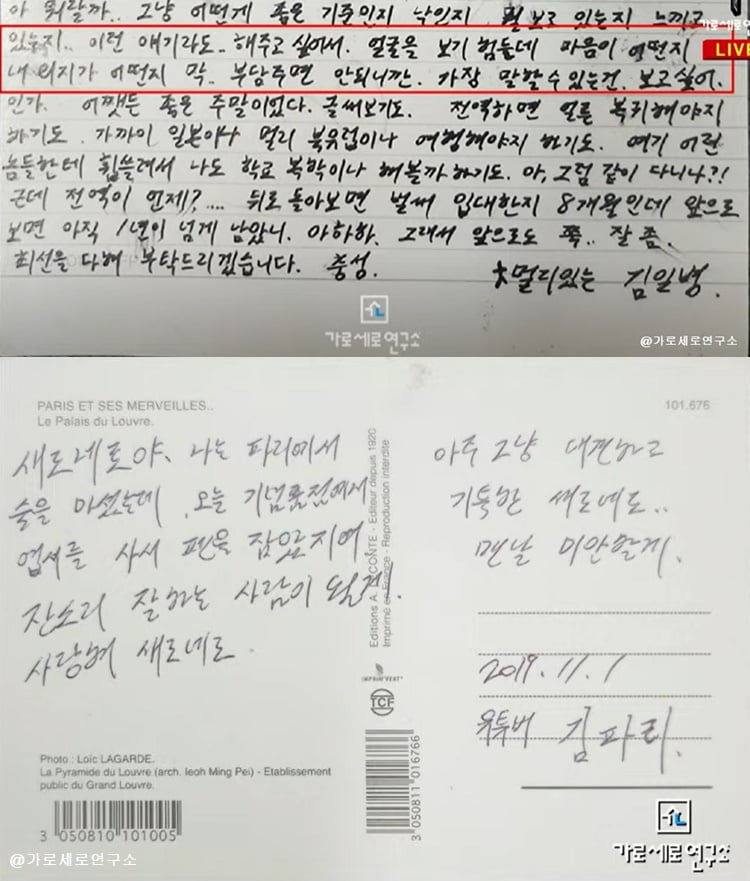 아 뭐랄까.. 그냥 어떤게 좋은 기준인지 낙인지 뭘 보고 있는지 느끼고
있는지.. 이런 얘기라도.. 해주고 싶어서. 얼굴을 보기 힘들데 마음이 어떤지
내 의지가 어떤지 막.. 부담주면 안되니깐. 가장 말할 수 있는건. 보고싶어.
인가. 어쨋든 좋은 주말이었다. 글써보기도. 전역하면 얼른 복귀해야지
하기도. 가까이 일본이나 멀리 북유럽이나 여행해야지 하기도. 여기 어린
놈들한테 휩쓸려서 나도 학교 복학이나 해볼까 하기도. 아, 그럼 같이 다니나?!
근데 전역이 언제?.... 뒤로 돌아보면 벌써 입대한지 8개월인데 앞으로
보면 아직 1년이 넘게 남았니. 아하하. 그래서 앞으로도 쭉.. 잘 좀.
최선을 다해 부탁드리겠습니다. 충성.
멀리있는 김일병.
가로세로연구소
LIVE
가로세로연구소
@가로세로연구소
PARIS ET SES MERVEILLES..
Le Palais du Louvre.
101.676
새로네로야. 나는 파리에서
술을 마셨는데. 오늘 기념품점에서
엽서를 사서 펜을 잡으지여.
잔소리 잘하는 사람이 될게.
사랑해 새로네로.
Editions A. LECONTE - Editeur depuis 1920
Imprimé en France - Reproduction interdite
IMPRIM'VERT
TCF
3 050811 016766
아주 그냥 대견하고
기특한 새로네로..
맨날 미안할게.
2019.11.1
유투버 김파리.
Photo : Loïc LAGARDE.
La Pyramide du Louvre (arch. Ieoh Ming Pei) - Etablissement
public du Grand Louvre.
3 050810 101005
@가로세로연구소
가로세로연구소